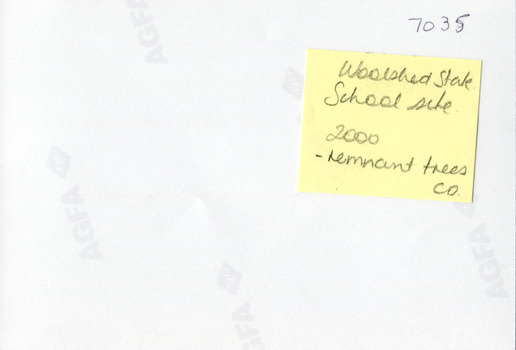 7035
Woolshed State
School site
2000
- remnant trees
CO.
AGFA
AGFA
AGFA
AGFA